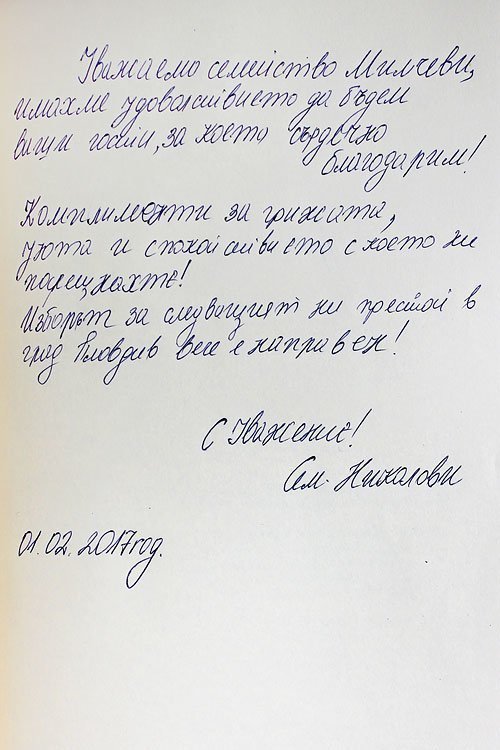 Уважаемо семейство Милчеви,
имахме удоволствието да бъдем
ваши гости, за което сърдечно
благодарим!
Комплименти за грижата,
уюта и спокойствието с което ни
посрещнахте!
Изборът за следващият ни престой в
град Пловдив вече е направен!
С Уважение!
Сем. Николови
01.02.2017год.